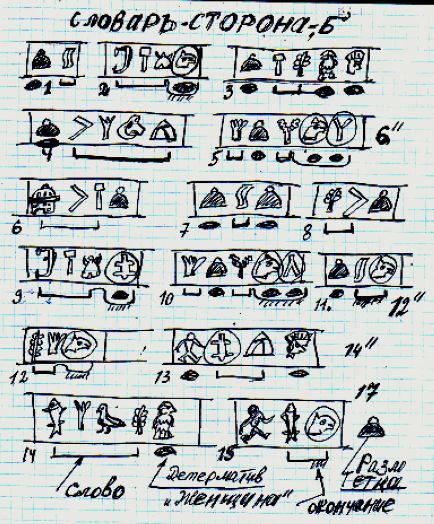 СЛОВАРЬ-СТОРОНА "Б"
1 2 3
4 5 6"
6 7 8
9 10 11. 12"
12 13 14"
17
14 15
Слово Детерматив "Женщина" окончание